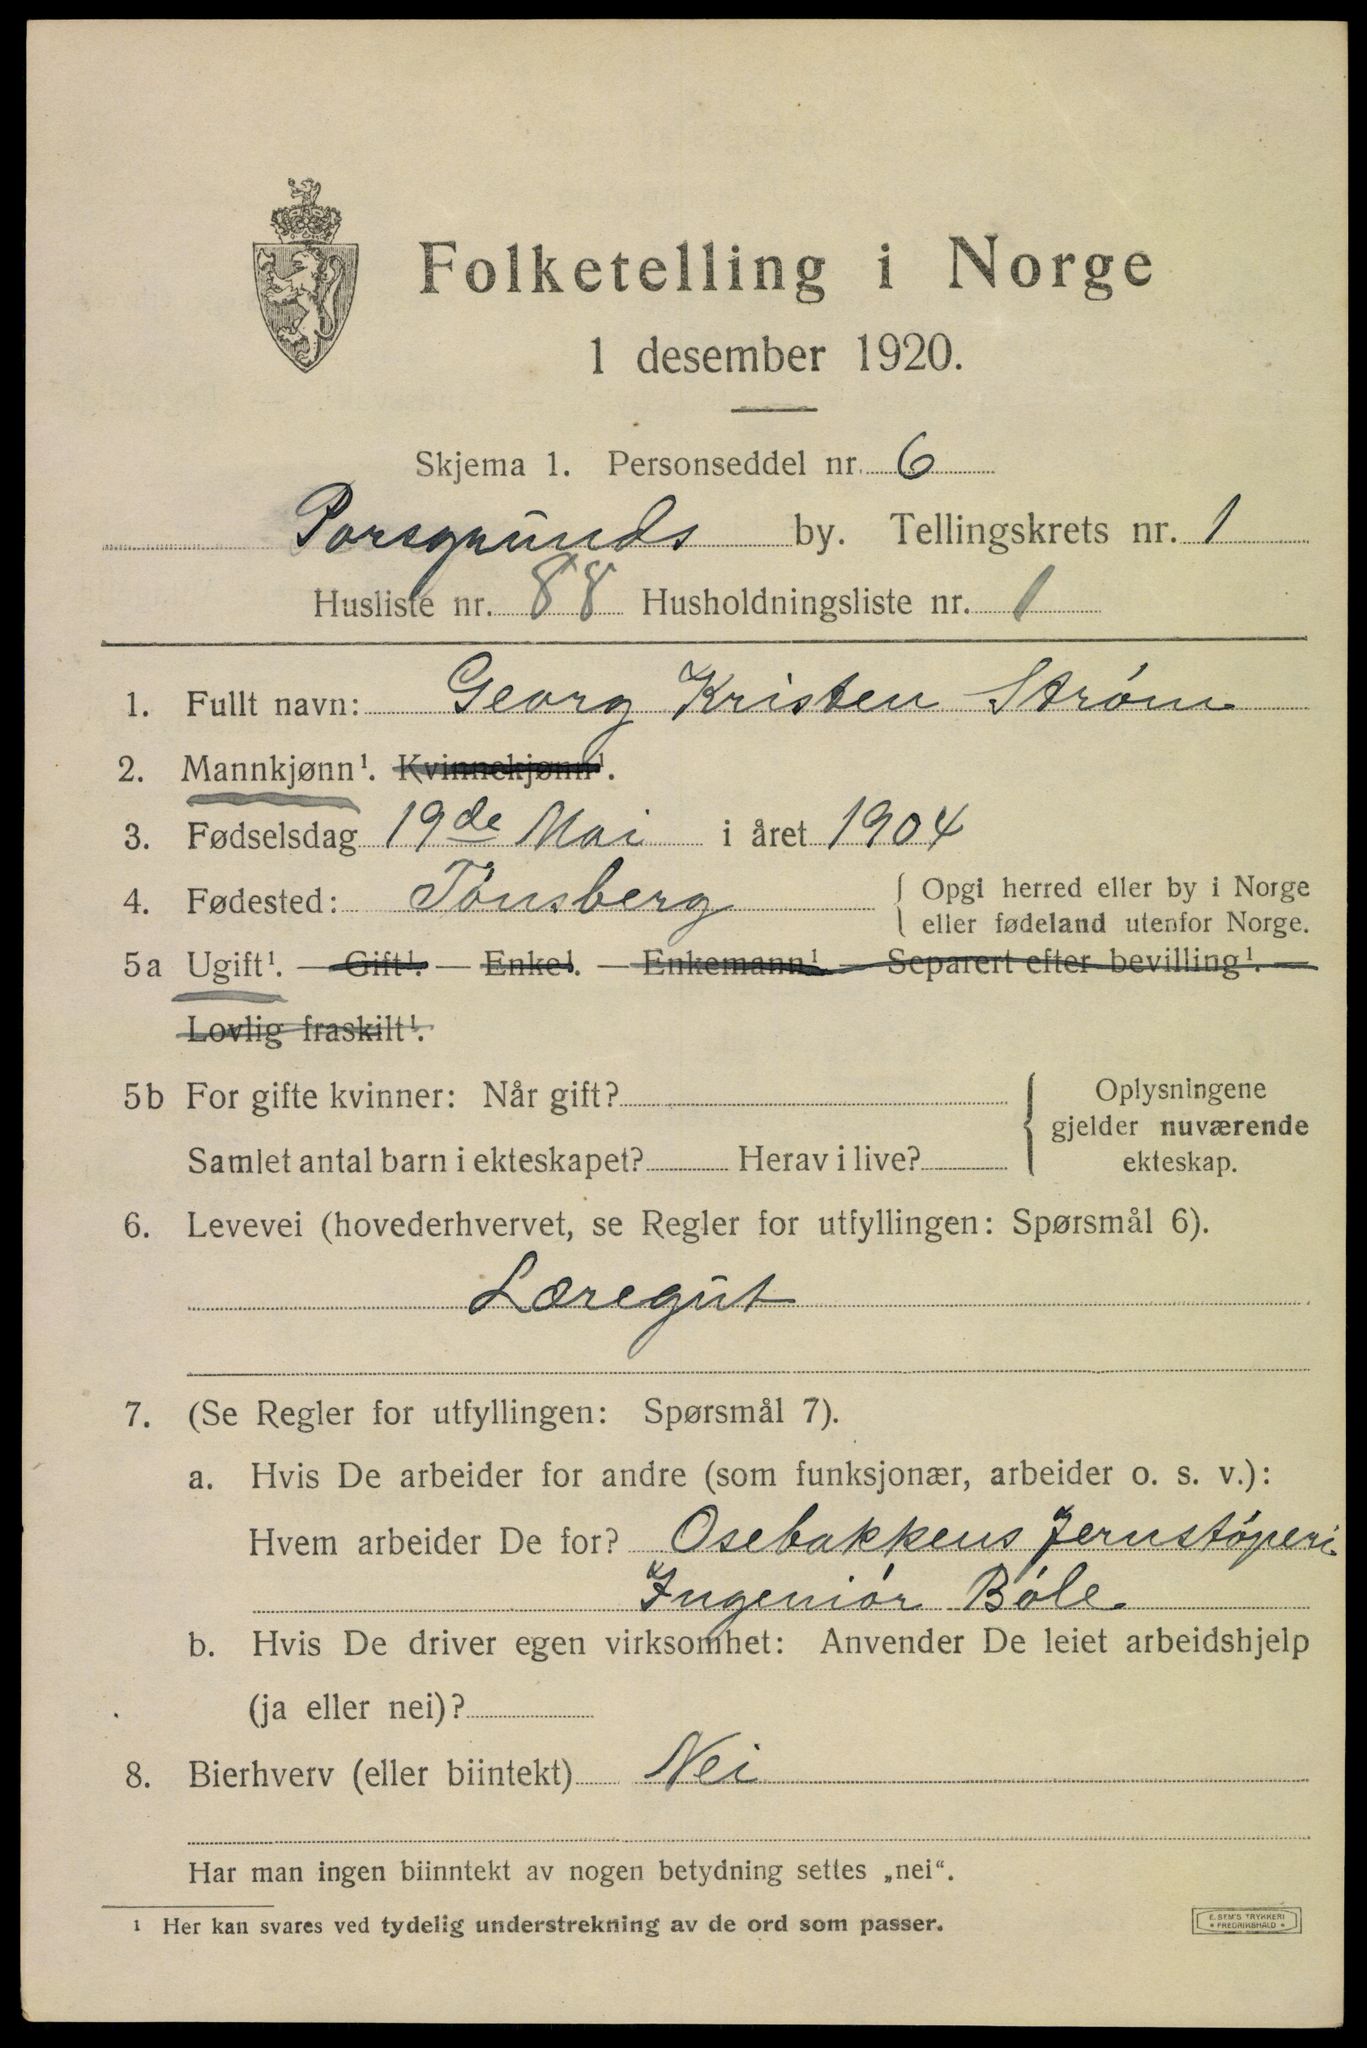 Folketelling i Norge
1 desember 1920.
Skjema 1. Personseddel nr. 6
Porsgrunds by. Tellingskrets nr. 1
Husliste nr. 88 Husholdningsliste nr. 1
1. Fullt navn: Georg Kristen Strøm
2. Mannkjønn¹. Kvinnekjønn¹.
3. Fødselsdag 19de Mai i året 1904
4. Fødested: Tønsberg { Opgi herred eller by i Norge
eller fødeland utenfor Norge.
5a Ugift¹. — Gift¹. — Enke¹. — Enkemann¹. — Separert efter bevilling¹. —
Lovlig fraskilt¹.
5b For gifte kvinner: Når gift? { Oplysningene
gjelder nuværende
Samlet antal barn i ekteskapet? Herav i live? ekteskap.
6. Levevei (hovederhvervet, se Regler for utfyllingen: Spørsmål 6).
Læregut
7. (Se Regler for utfyllingen: Spørsmål 7).
a. Hvis De arbeider for andre (som funksjonær, arbeider o. s. v.):
Hvem arbeider De for? Osebakkens Jernstøperi
Ingeniør Bøle
b. Hvis De driver egen virksomhet: Anvender De leiet arbeidshjelp
(ja eller nei)?
8. Bierhverv (eller biintekt) Nei
Har man ingen biinntekt av nogen betydning settes „nei“.
¹ Her kan svares ved tydelig understrekning av de ord som passer.
E. SEM'S TRYKKERI
* FREDRIKSHALD *